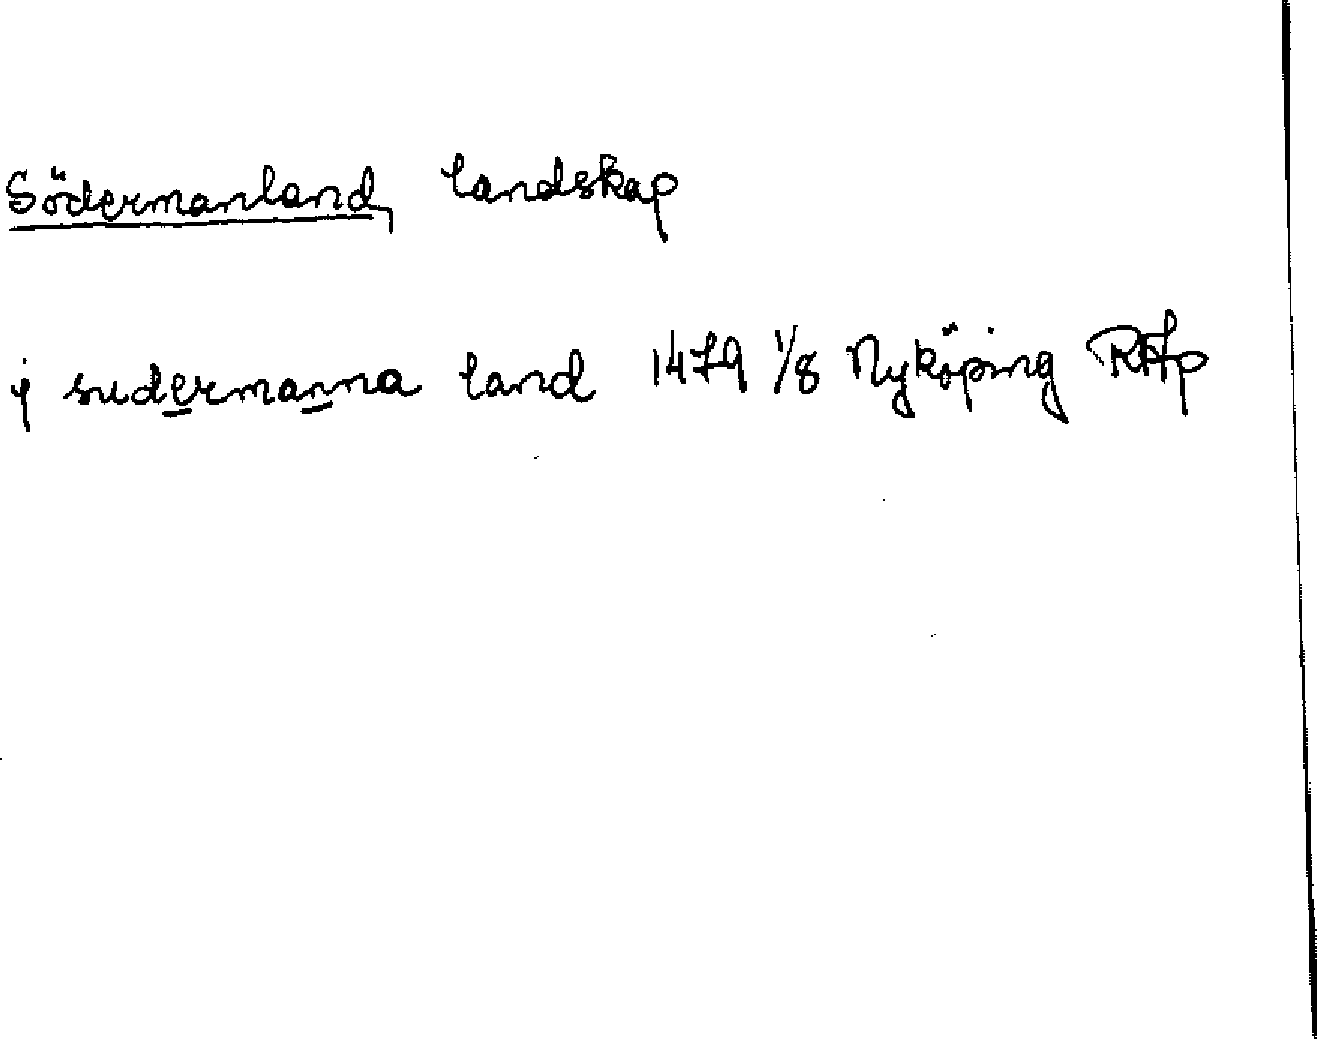 Södermanland, landskap
j sudermanna land 1479 1/8 Nyköping RAp